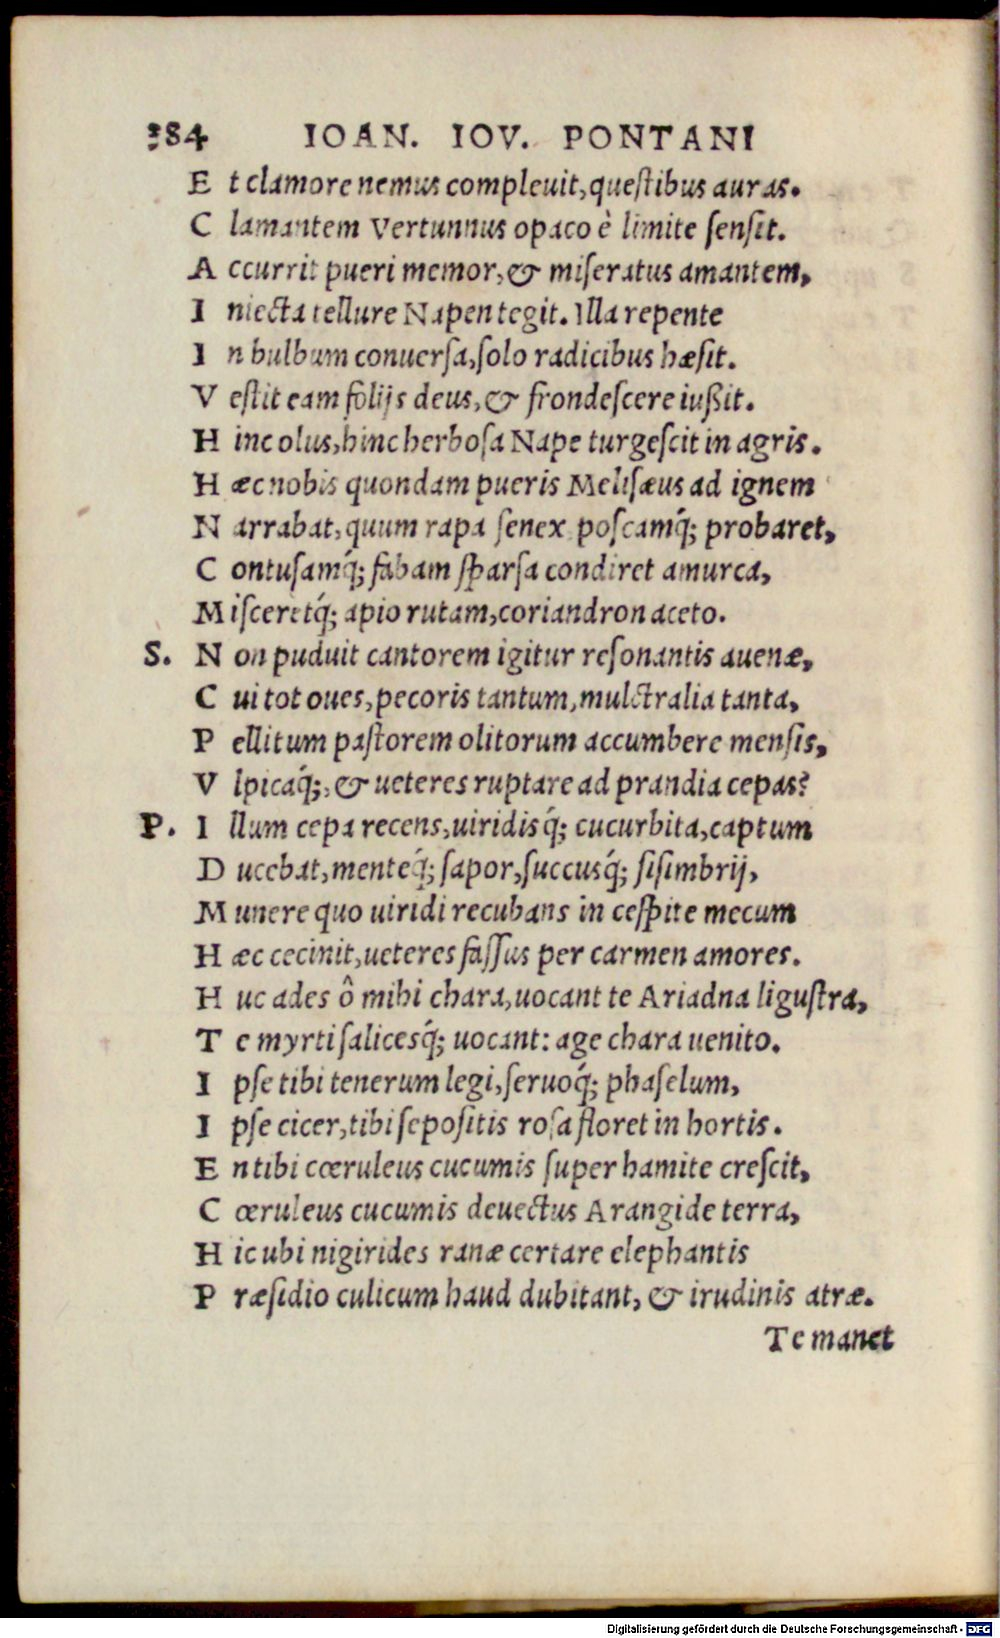 184 IOAN. IOV. PONTANI
E t clamore nemus compleuit, questibus auras.
C lamantem Vertunnus opaco è limite sensit.
A ccurrit pueri memor, & miseratus amantem,
I niecta tellure Napen tegit. Illa repente
I n bulbum conuersa, solo radicibus hæsit.
V estit eam folijs deus, & frondescere iußit.
H inc olus, hinc herbosa Nape turgescit in agris.
H æc nobis quondam pueris Melisæus ad ignem
N arrabat, quum rapa senex poscamq́; probaret,
C ontusamq́; fabam sparsa condiret amurca,
M isceretq́; apio rutam, coriandron aceto.
S. N on puduit cantorem igitur resonantis auenæ,
C ui tot oues, pecoris tantum, mulctralia tanta,
P ellitum pastorem olitorum accumbere mensis,
V lpicaq́;, & ueteres ruptare ad prandia cepas?
P. I llum cepa recens, uiridisq́; cucurbita, captum
D ucebat, menteq́; sapor, succusq́; sisimbrij,
M unere quo uiridi recubans in cespite mecum
H æc cecinit, ueteres fassus per carmen amores.
H uc ades ô mihi chara, uocant te Ariadna ligustra,
T e myrti salicesq́; uocant: age chara uenito.
I pse tibi tenerum legi, seruoq́; phaselum,
I pse cicer, tibi sepositis rosa floret in hortis.
E n tibi cœruleus cucumis super hamite crescit,
C œruleus cucumis deuectus Arangide terra,
H ic ubi nigirides ranæ certare elephantis
P ræsidio culicum haud dubitant, & irudinis atræ.
Te manet
Digitalisierung gefördert durch die Deutsche Forschungsgemeinschaft - DFG